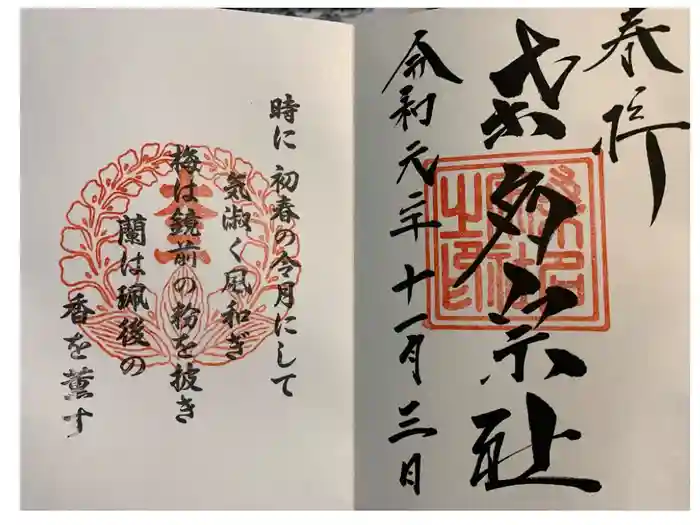 奉拝
令和元年十一月三日
時に 初春の令月にして
気淑く風和ぎ
梅は鏡前の粉を披き
蘭は珮後の
香を薫す